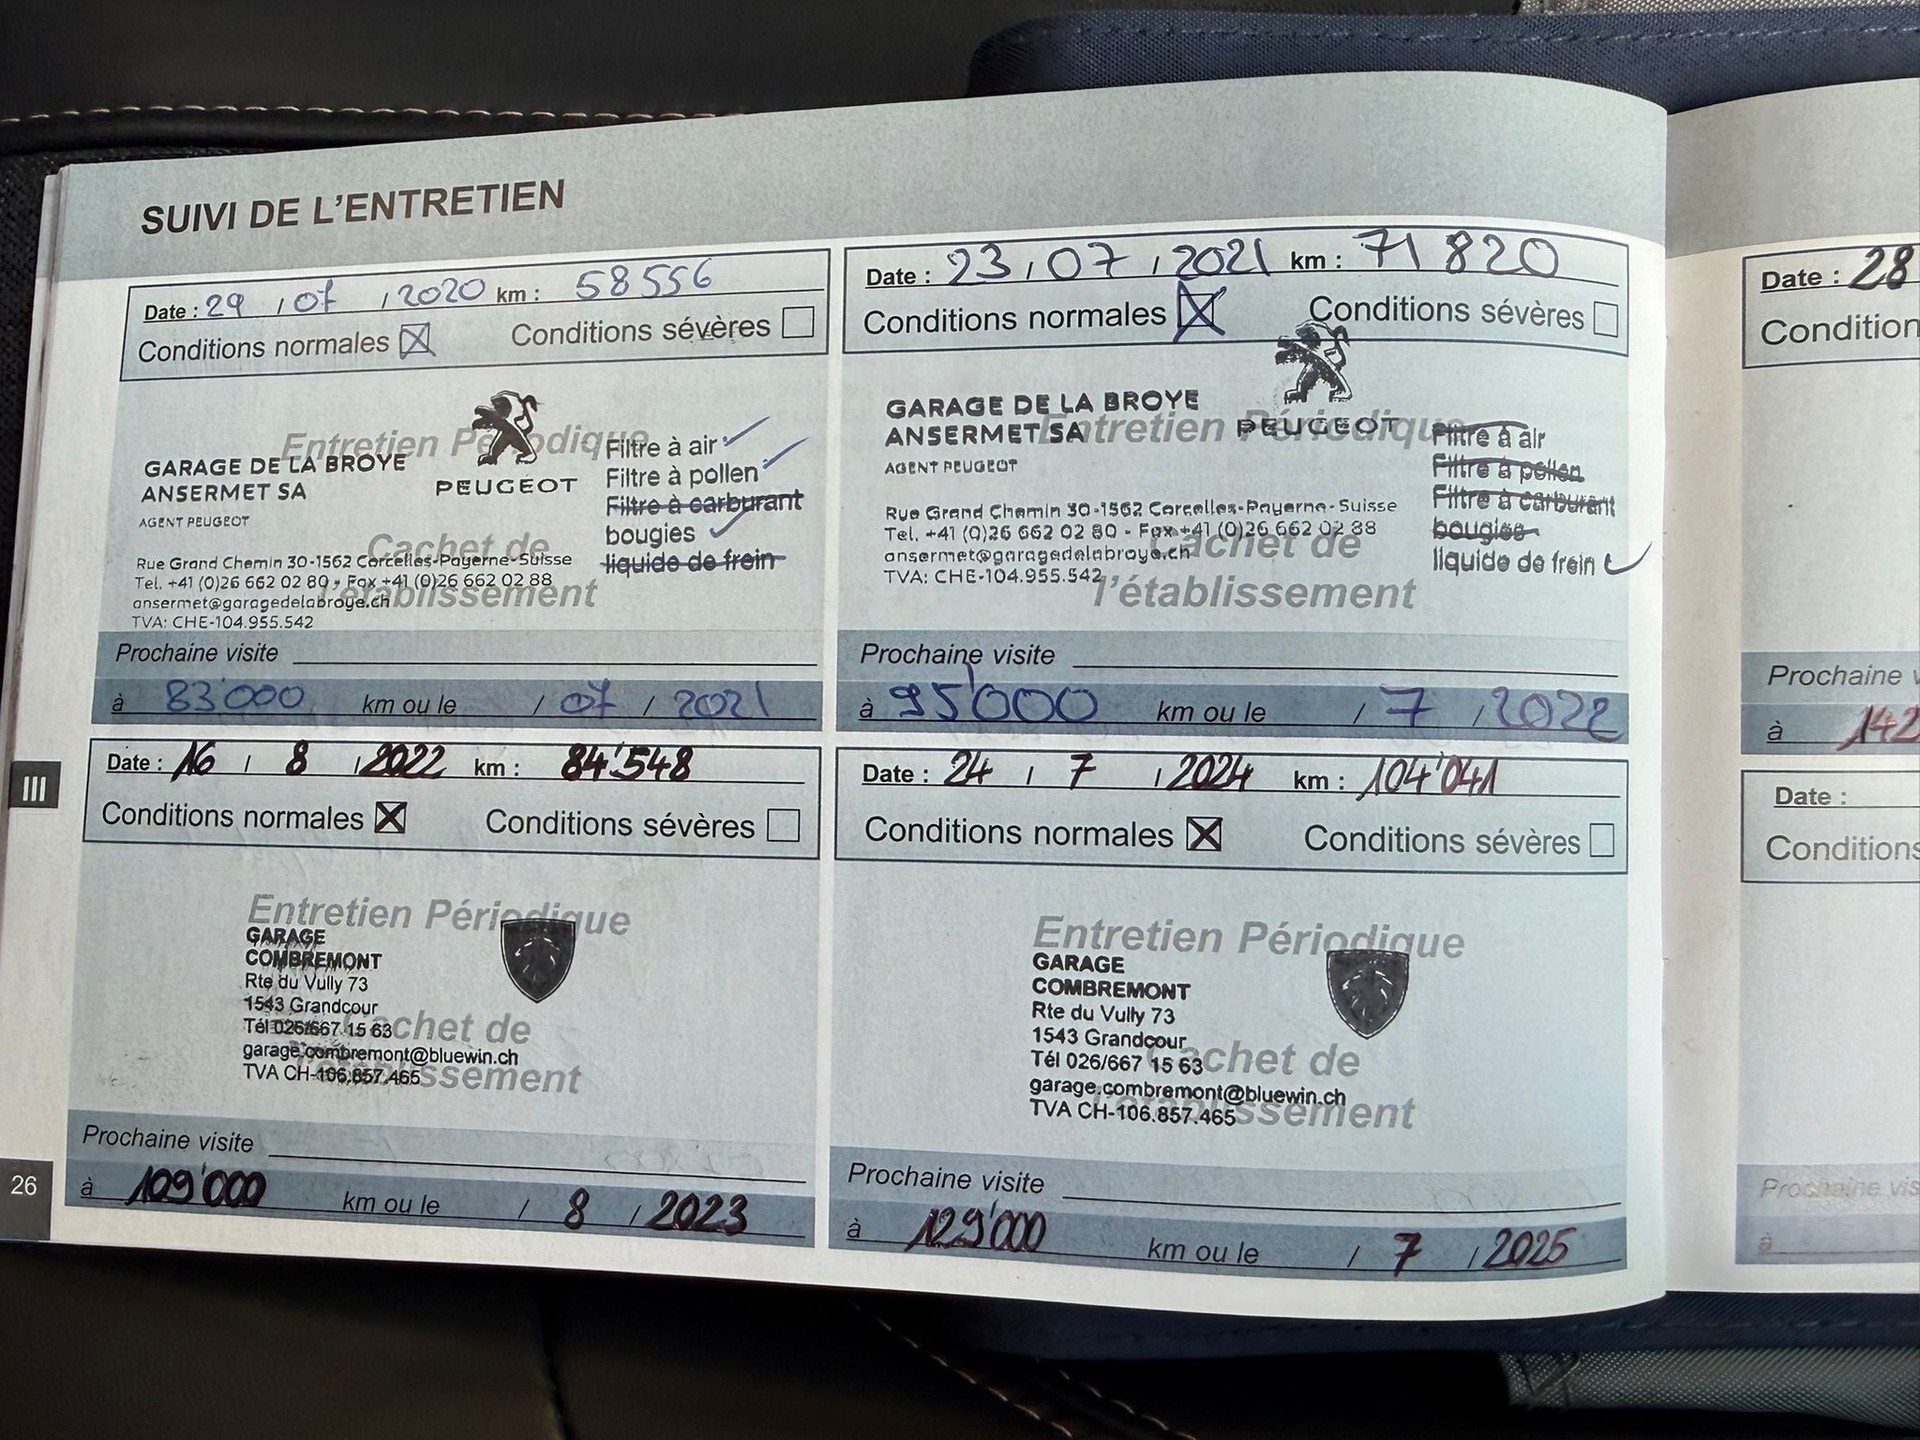 SUIVI DE L'ENTRETIEN
Date : 29 / 07 / 2020 km : 58556
Conditions normales ☒ Conditions sévères ☐
Entretien Périodique
GARAGE DE LA BROYE
ANSERMET SA
AGENT PEUGEOT
PEUGEOT
Rue Grand Chemin 30-1562 Corcelles-Payerne-Suisse
Tel. +41 (0)26 662 02 80 - Fax +41 (0)26 662 02 88
ansermet@garagedelabroye.ch
TVA: CHE-104.955.542
Filtre à air
Filtre à pollen
Filtre à carburant
bougies
liquide de frein
Cachet de
l'établissement
Prochaine visite
à 83'000 km ou le / 07 / 2021
Date : 23 / 07 / 2021 km : 71820
Conditions normales ☒ Conditions sévères ☐
Entretien Périodique
GARAGE DE LA BROYE
ANSERMET SA
AGENT PEUGEOT
PEUGEOT
Rue Grand Chemin 30-1562 Corcelles-Payerne-Suisse
Tel. +41 (0)26 662 02 80 - Fax +41 (0)26 662 02 88
ansermet@garagedelabroye.ch
TVA: CHE-104.955.542
Filtre à air
Filtre à pollen
Filtre à carburant
bougies
liquide de frein
Cachet de
l'établissement
Prochaine visite
à 95'000 km ou le / 7 / 2022
Date : 16 / 8 / 2022 km : 84'548
Conditions normales ☒ Conditions sévères ☐
Entretien Périodique
GARAGE
COMBREMONT
Rte du Vully 73
1543 Grandcour
Tél 026/667 15 63
garage.combremont@bluewin.ch
TVA CH-106.857.465
Cachet de
l'établissement
Prochaine visite
à 109'000 km ou le / 8 / 2023
Date : 24 / 7 / 2024 km : 104'041
Conditions normales ☒ Conditions sévères ☐
Entretien Périodique
GARAGE
COMBREMONT
Rte du Vully 73
1543 Grandcour
Tél 026/667 15 63
garage.combremont@bluewin.ch
TVA CH-106.857.465
Cachet de
l'établissement
Prochaine visite
à 129'000 km ou le / 7 / 2025
III
26
Date : 28
Condition
Prochaine v
à 142
Date :
Conditions
Prochaine vis
à